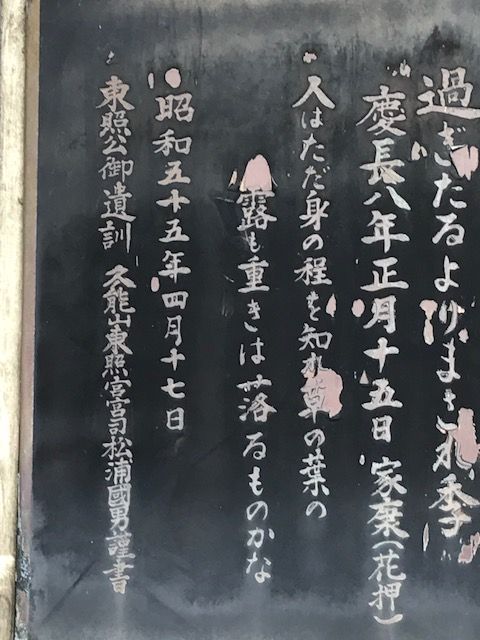 過ぎたるよりまされ季
慶長八年正月十五日 家康(花押)
人はただ身の程を知れ草の葉の
露も重きは落るものかな
昭和五十五年四月十七日
東照公御遺訓 久能山東照宮宮司松浦國男謹書